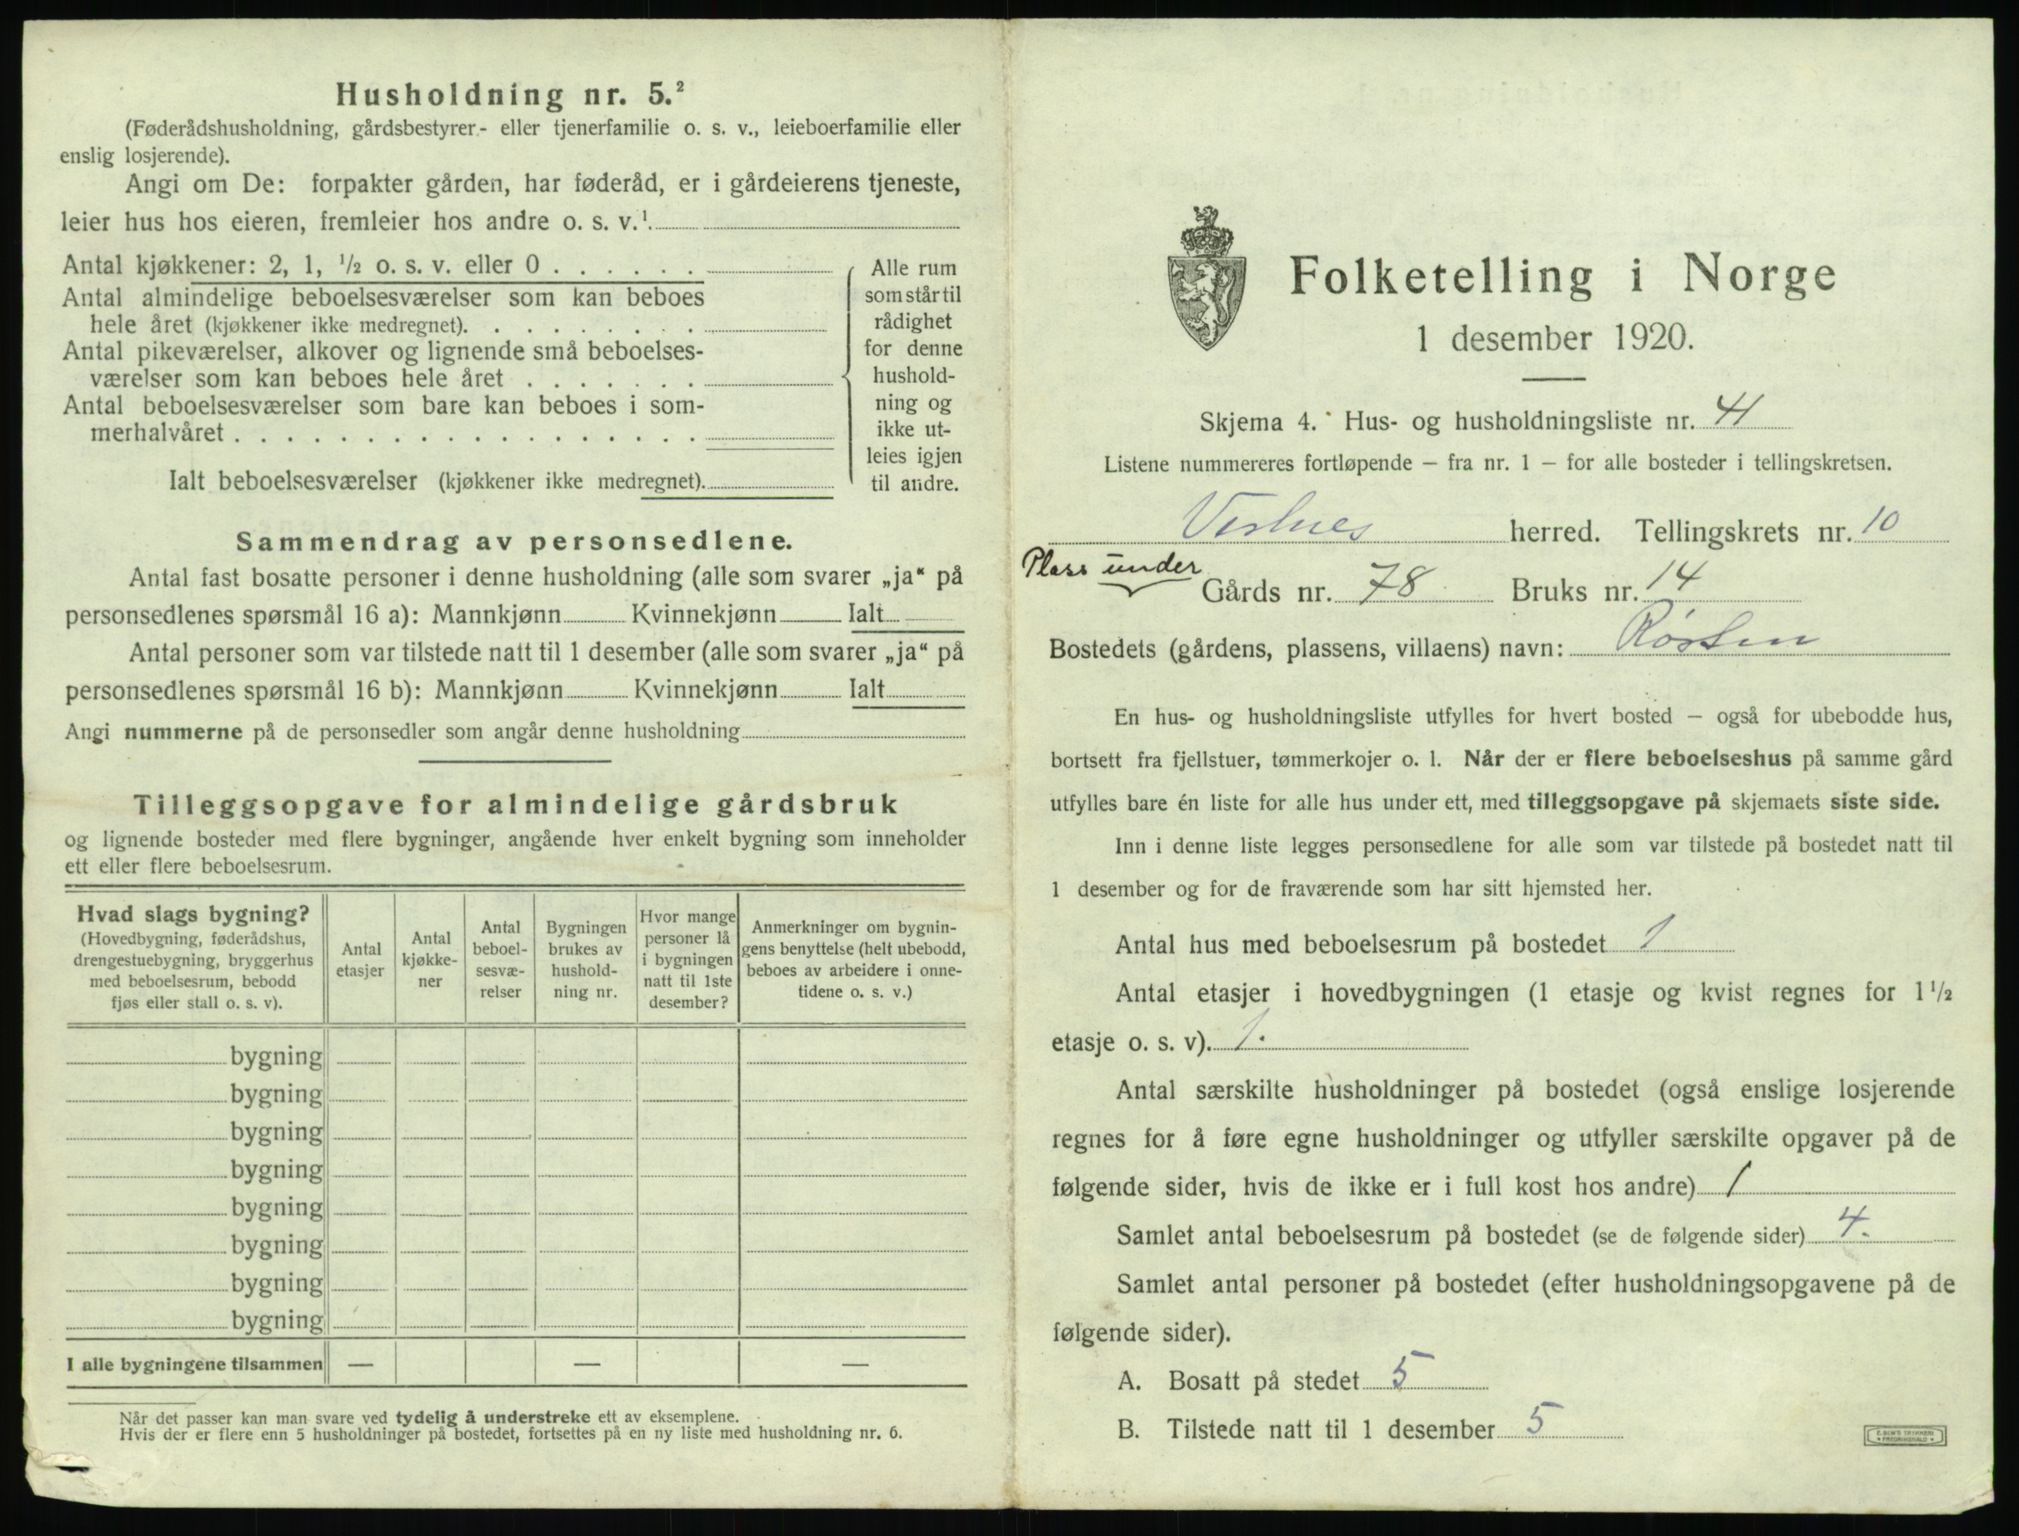 Husholdning nr. 5.²
(Føderådshusholdning, gårdsbestyrer- eller tjenerfamilie o. s. v., leieboerfamilie eller
enslig losjerende).
Angi om De: forpakter gården, har føderåd, er i gårdeierens tjeneste,
leier hus hos eieren, fremleier hos andre o. s. v.¹
Antal kjøkkener: 2, 1, ½ o. s. v. eller 0 . . . . . .
Antal almindelige beboelsesværelser som kan beboes
hele året (kjøkkener ikke medregnet). . . . . . . . .
Antal pikeværelser, alkover og lignende små beboelses-
værelser som kan beboes hele året . . . . . . .
Antal beboelsesværelser som bare kan beboes i som-
merhalvåret . . . . . . . . . . . . . . . . . .
Ialt beboelsesværelser (kjøkkener ikke medregnet).
Alle rum
som står til
rådighet
for denne
hushold-
ning og
ikke ut-
leies igjen
til andre.
Sammendrag av personsedlene.
Antal fast bosatte personer i denne husholdning (alle som svarer „ja“ på
personsedlenes spørsmål 16 a): Mannkjønn Kvinnekjønn Ialt
Antal personer som var tilstede natt til 1 desember (alle som svarer „ja“ på
personsedlenes spørsmål 16 b): Mannkjønn Kvinnekjønn Ialt
Angi nummerne på de personsedler som angår denne husholdning
Tilleggsopgave for almindelige gårdsbruk
og lignende bosteder med flere bygninger, angående hver enkelt bygning som inneholder
ett eller flere beboelsesrum.
Hvad slags bygning?
(Hovedbygning, føderådshus,
drengestuebygning, bryggerhus
med beboelsesrum, bebodd
fjøs eller stall o. s. v).
Antal
etasjer
Antal
kjøkke-
ner
Antal
beboel-
sesvæ-
relser
Bygningen
brukes av
hushold-
ning nr.
Hvor mange
personer lå
i bygningen
natt til 1ste
desember?
Anmerkninger om bygnin-
gens benyttelse (helt ubebodd,
beboes av arbeidere i onne-
tidene o. s. v.)
bygning
bygning
bygning
bygning
bygning
bygning
bygning
bygning
I alle bygningene tilsammen — — —
Når det passer kan man svare ved tydelig å understreke ett av eksemplene.
Hvis der er flere enn 5 husholdninger på bostedet, fortsettes på en ny liste med husholdning nr. 6.
Folketelling i Norge
1 desember 1920.
Skjema 4. Hus- og husholdningsliste nr. 41
Listene nummereres fortløpende – fra nr. 1 – for alle bosteder i tellingskretsen.
Vestnes herred. Tellingskrets nr. 10
Plass under
Gårds nr. 78 Bruks nr. 14
Bostedets (gårdens, plassens, villaens) navn: Rørsten
En hus- og husholdningsliste utfylles for hvert bosted – også for ubebodde hus,
bortsett fra fjellstuer, tømmerkojer o. l. Når der er flere beboelseshus på samme gård
utfylles bare én liste for alle hus under ett, med tilleggsopgave på skjemaets siste side.
Inn i denne liste legges personsedlene for alle som var tilstede på bostedet natt til
1 desember og for de fraværende som har sitt hjemsted her.
Antal hus med beboelsesrum på bostedet 1
Antal etasjer i hovedbygningen (1 etasje og kvist regnes for 1½
etasje o. s. v). 1.
Antal særskilte husholdninger på bostedet (også enslige losjerende
regnes for å føre egne husholdninger og utfyller særskilte opgaver på de
følgende sider, hvis de ikke er i full kost hos andre) 1
Samlet antal beboelsesrum på bostedet (se de følgende sider) 4.
Samlet antal personer på bostedet (efter husholdningsopgavene på de
følgende sider).
A. Bosatt på stedet 5
B. Tilstede natt til 1 desember 5